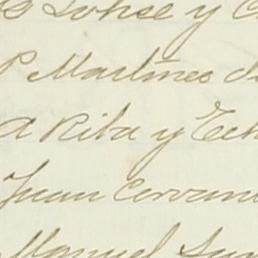 Lohse y C
P Martines d
A Riba y Ech
Juan Cervan
Manuel Su